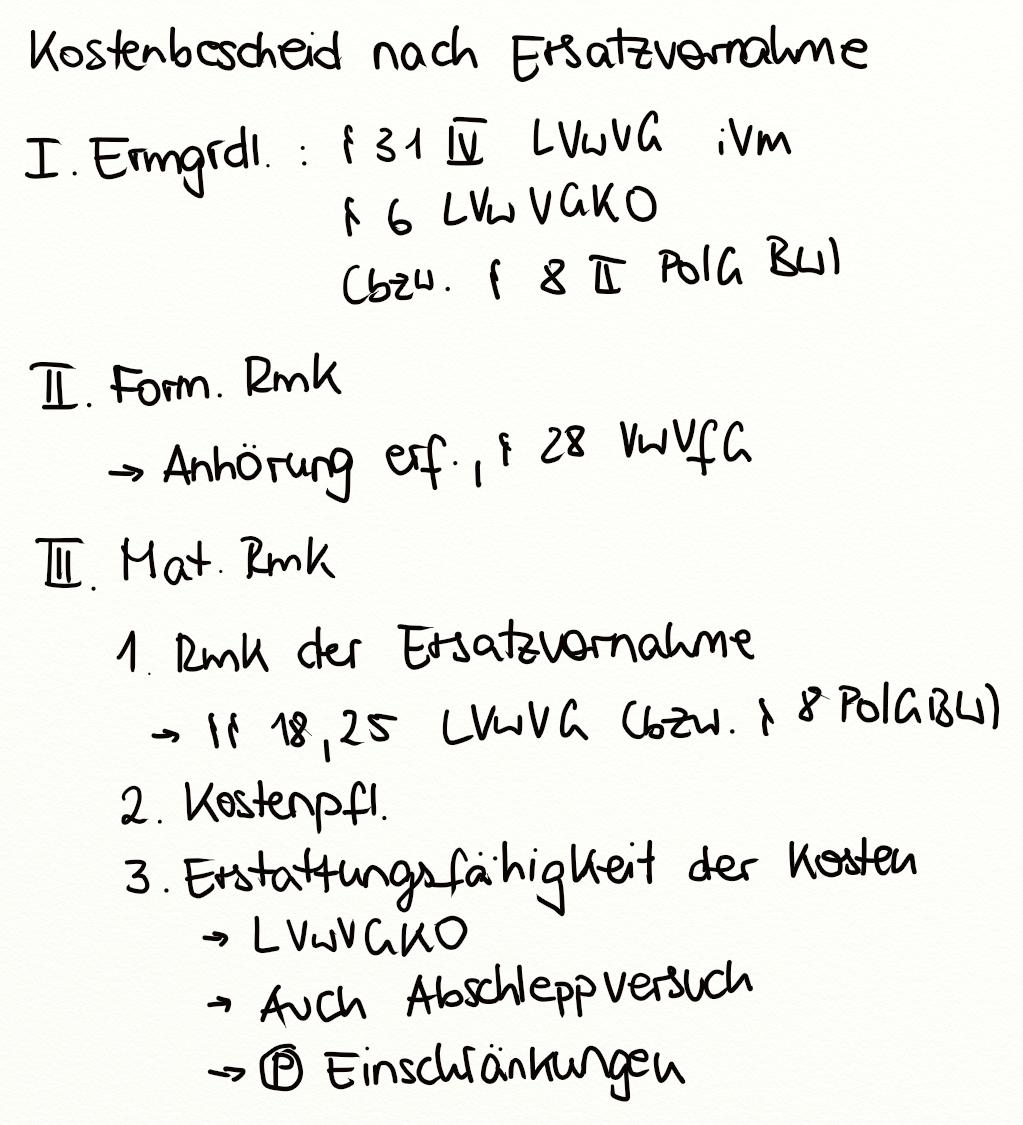 Kostenbescheid nach Ersatzvornahme
I. Ermgrdl. : § 31 IV LVwVG iVm
§ 6 LVwVGKO
(bzw. § 8 II PolG BW)
II. Form. Rmk
→ Anhörung erf., § 28 VwVfG
III. Mat. Rmk
1. Rmk der Ersatzvornahme
→ §§ 18, 25 LVwVG (bzw. § 8 PolG BW)
2. Kostenpfl.
3. Erstattungsfähigkeit der Kosten
→ LVwVGKO
→ Auch Abschleppversuch
→ Ⓟ Einschränkungen